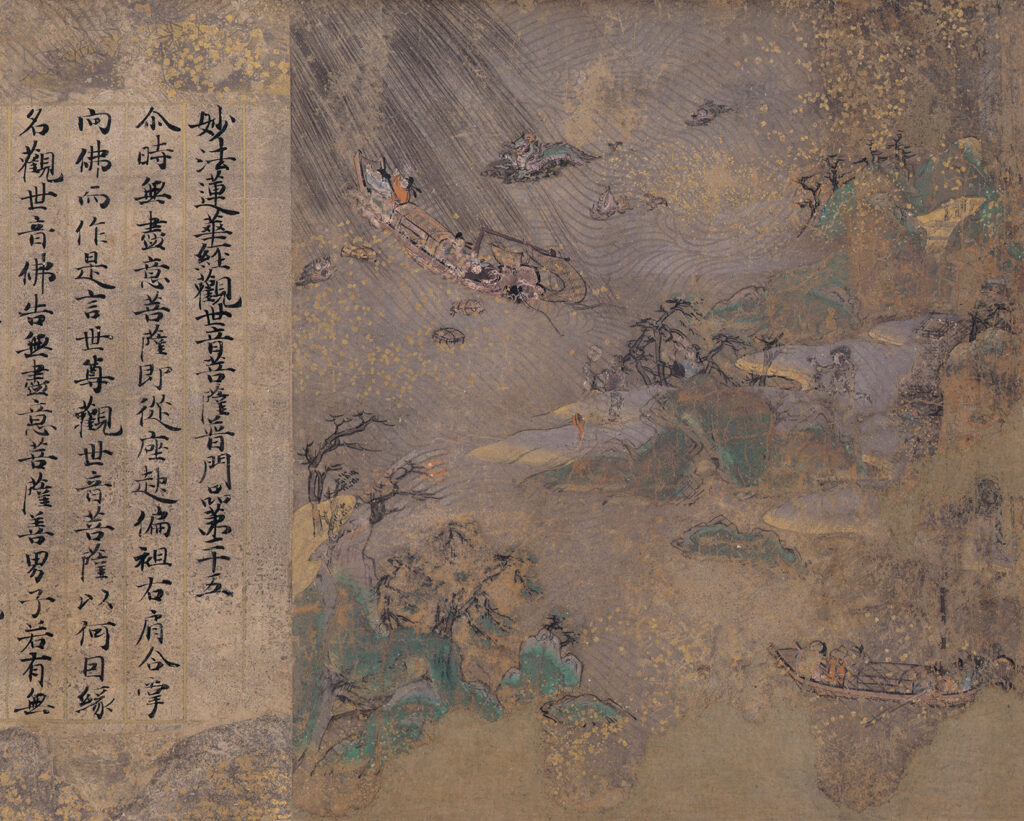 妙法蓮華經觀世音菩薩普門品第二十五
尒時無盡意菩薩即從座起偏袒右肩合掌
向佛而作是言世尊觀世音菩薩以何因緣
名觀世音佛告無盡意菩薩善男子若有無